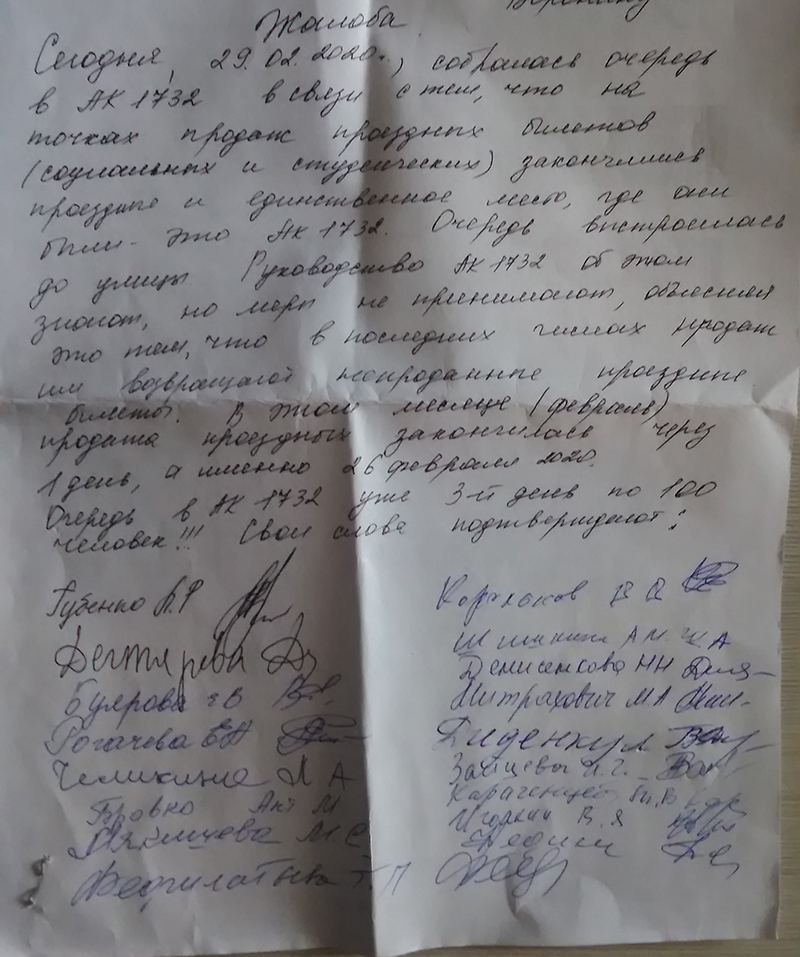 Жалоба
Сегодня, 29.02.2020г., собралась очередь
в АК 1732 в связи с тем, что на
точках продаж проездных билетов
(социальных и студенческих) закончились
проездные и единственное место, где они
были - это АК 1732. Очередь выстроилась
до улицы. Руководство АК 1732 об этом
знают, но меры не принимают, объясняя
это тем, что в последних числах продаж
им возвращают непроданные проездные
билеты. В этом месяце (февраль)
продажа проездных закончилась через
1 день, а именно 26 февраля 2020.
Очередь в АК 1732 уже 3-й день по 100
человек!!! Свои слова подтверждают:
Губенко Л.Ф
Дегтярева
Буярова
Рогачева ЕА
Челикина Л А
Бровко М
М С
Феофилактова Т.П
В
Шишкина А М.
Денисенкова НН
Митрахович М А
Диденкул
Зайцева И.Г.
В. Я